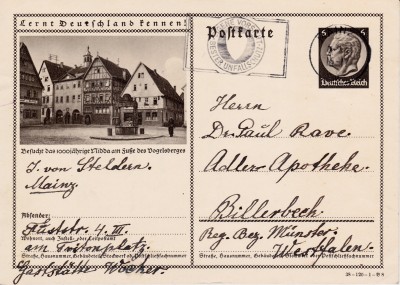 Lernt Deutschland kennen!
Postkarte
6 6
Deutsches Reich
Besucht das 1000jährige Nidda am Fuße des Vogelsberges
J. von Steldern.
Mainz
Absender:
Fuststr. 4. III.
Wohnort, auch Zustell- oder Leitpostamt
am Tritonplatz.
Straße, Hausnummer, Gebäudeteil, Stockwerk od. Postschließfachnummer
Gaststätte Wöcker.
Herrn
Dr. Paul Rave.
Adler Apotheke.
Billerbeck.
Reg. Bez. Münster
Westfalen.
Straße, Hausnummer, Gebäudeteil, Stockwerk od. Postschließfachnummer